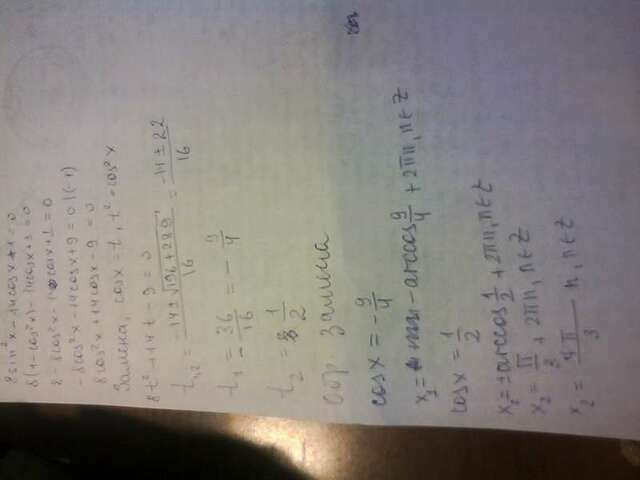 8sin²x - 14cosx + 1 = 0
8(1-cos²x) - 14cosx + 1 = 0
8 - 8cos²x - 14cosx + 1 = 0
-8cos²x - 14cosx + 9 = 0 | (-1)
8cos²x + 14cosx - 9 = 0
Замена, cosx = t, t² = cos²x
8t² + 14t - 9 = 0
t₁,₂ = (-14 ± √(196+288))/16 = (-14 ± 22)/16
t₁ = -36/16 = -9/4
t₂ = 1/2
Обр замена
cosx = -9/4
x₁ = - arccos 9/4 + 2πn, n∈Z
cosx = 1/2
x₂ = ± arccos 1/2 + 2πn, n∈Z
x₂ = π/3 + 2πn, n∈Z
x₂ = π/3 n, n∈Z